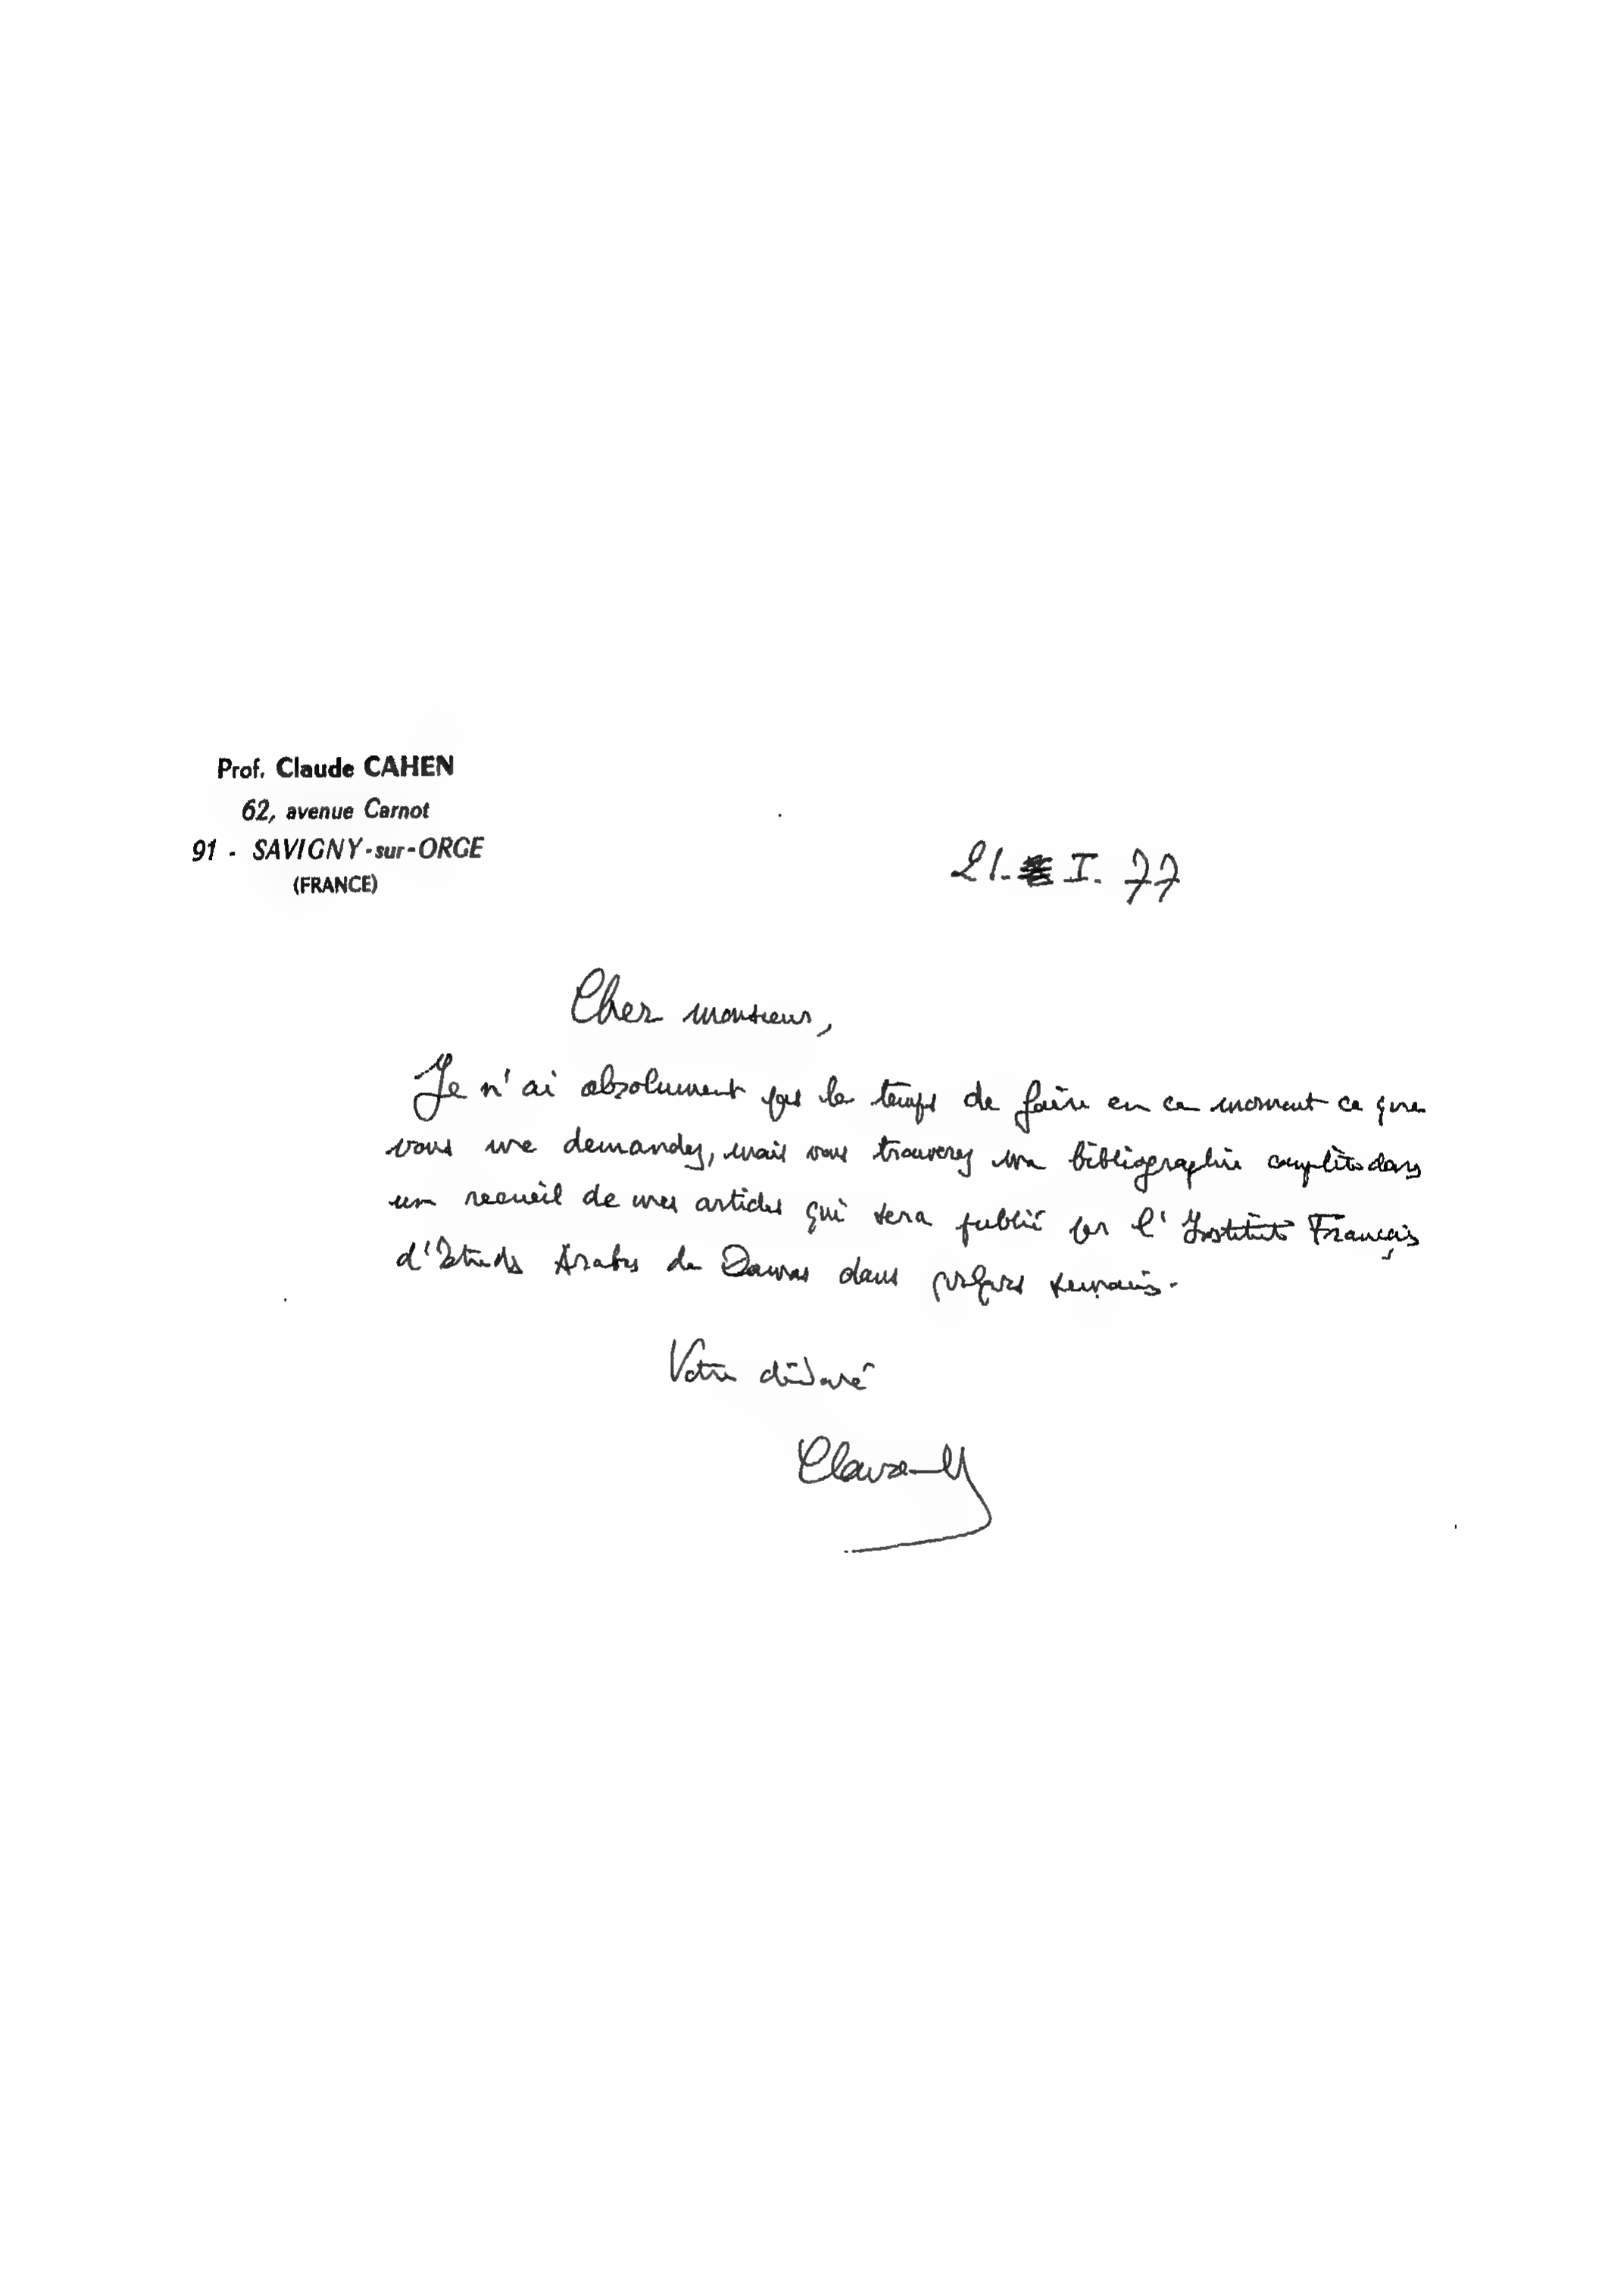 Prof. Claude CAHEN
62, avenue Carnot
91 - SAVIGNY-sur-ORGE
(FRANCE)
21. I. 77
Cher monsieur,
Je n'ai absolument pas le temps de faire en ce moment ce que
vous me demandez, mais vous trouverez ma bibliographie complète dans
un recueil de mes articles qui sera publié par l'Institut Français
d'Etudes Arabes de Damas dans quelques semaines.
Votre dévoué